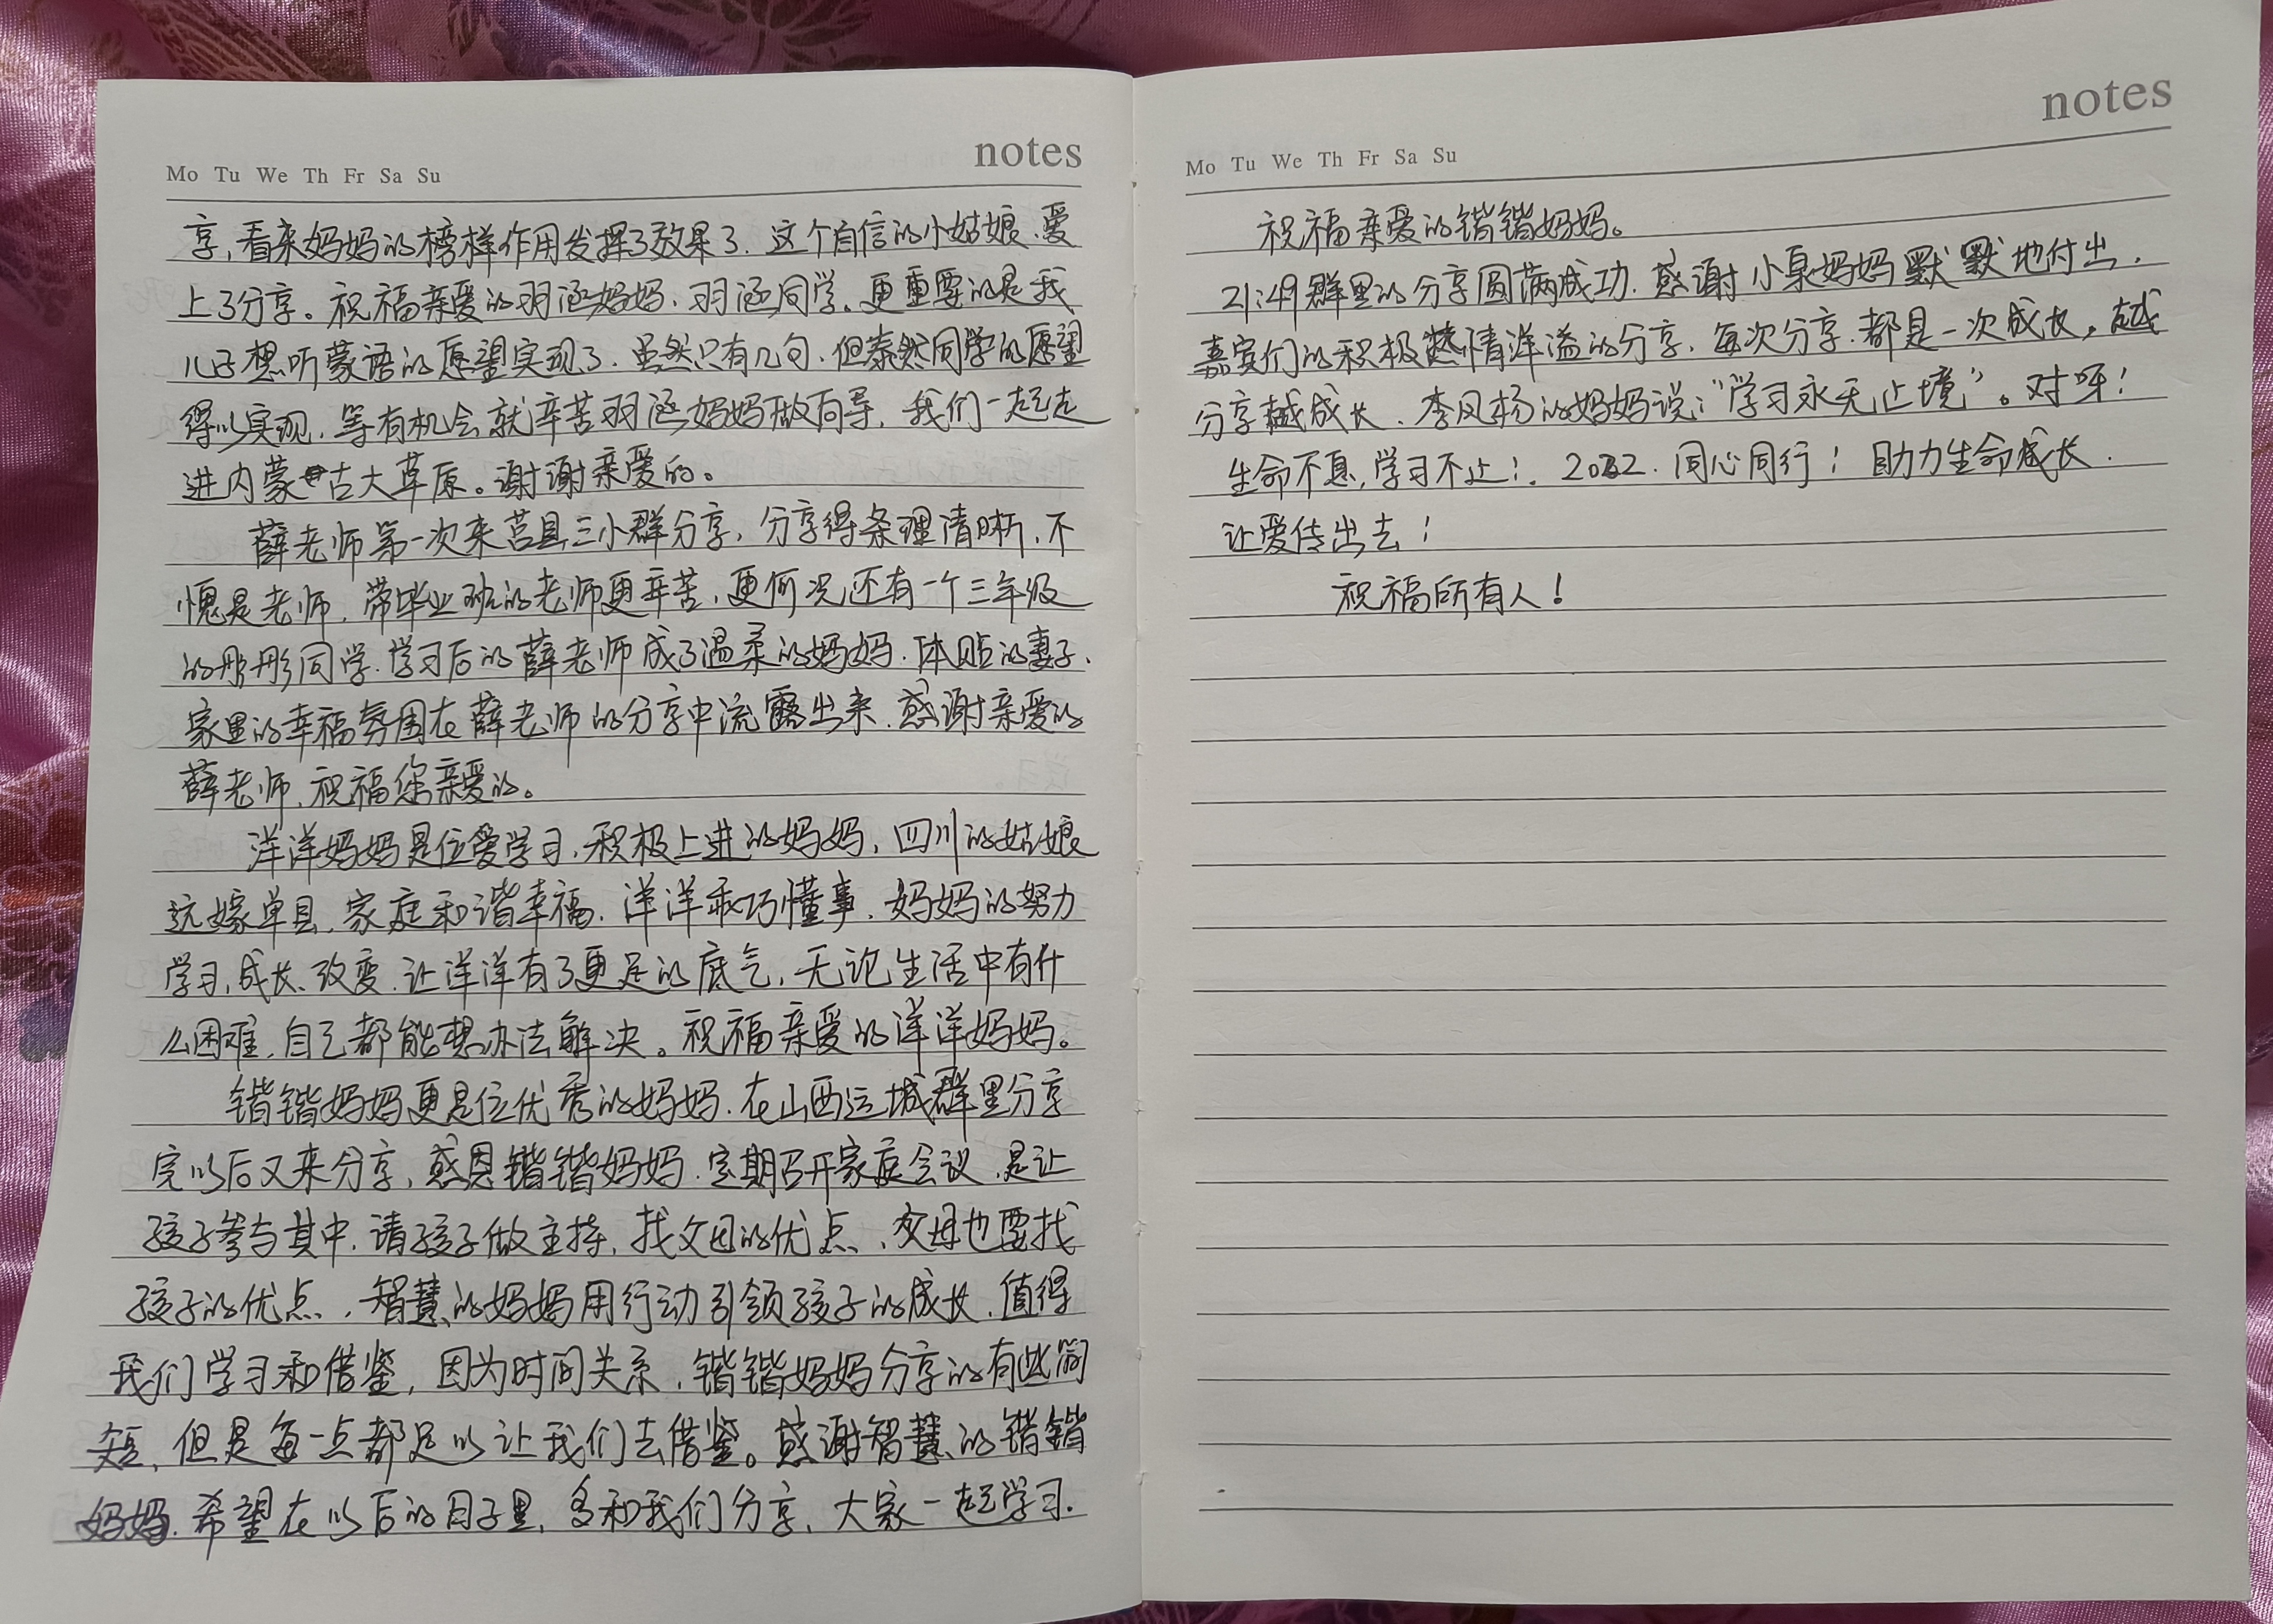 notes
Mo Tu We Th Fr Sa Su
享,看来妈妈的榜样作用发挥了效果了.这个自信的小姑娘.爱
上了分享。祝福亲爱的羽涵妈妈.羽涵同学。更重要的是我
儿子想听蒙语的愿望实现了.虽然只有几句.但泰然同学的愿望
得以实现.等有机会就辛苦羽涵妈妈做向导,我们一起走
进内蒙古大草原。谢谢亲爱的。
薛老师第一次来莒县三小群分享,分享得条理清晰.不
愧是老师,带毕业班的老师更辛苦,更何况还有一个三年级
的彤彤同学.学习后的薛老师成了温柔的妈妈.体贴的妻子.
家里的幸福氛围在薛老师的分享中流露出来.感谢亲爱的
薛老师,祝福您亲爱的。
洋洋妈妈是位爱学习,积极上进的妈妈,四川的姑娘
远嫁单县,家庭和谐幸福.洋洋乖巧懂事.妈妈的努力
学习,成长、改变.让洋洋有了更足的底气,无论生活中有什
么困难,自己都能想办法解决。祝福亲爱的洋洋妈妈。
锴锴妈妈更是位优秀的妈妈.在山西运城群里分享
完以后又来分享,感恩锴锴妈妈.定期召开家庭会议.是让
孩子参与其中.请孩子做主持,找父母的优点.父母也要找
孩子的优点.智慧的妈妈用行动引领孩子的成长.值得
我们学习和借鉴,因为时间关系,锴锴妈妈分享的有些简
短,但是每一点都足以让我们去借鉴。感谢智慧的锴锴
妈妈.希望在以后的日子里,多和我们分享,大家一起学习.
notes
Mo Tu We Th Fr Sa Su
祝福亲爱的锴锴妈妈。
21:49群里的分享圆满成功.感谢小泉妈妈默默地付出.
嘉宾们的积极热情洋溢的分享.每次分享.都是一次成长。越
分享越成长.李风杨的妈妈说:"学习永无止境"。对呀!
生命不息,学习不止!.2022.同心同行!助力生命成长.
让爱传出去!
祝福所有人!